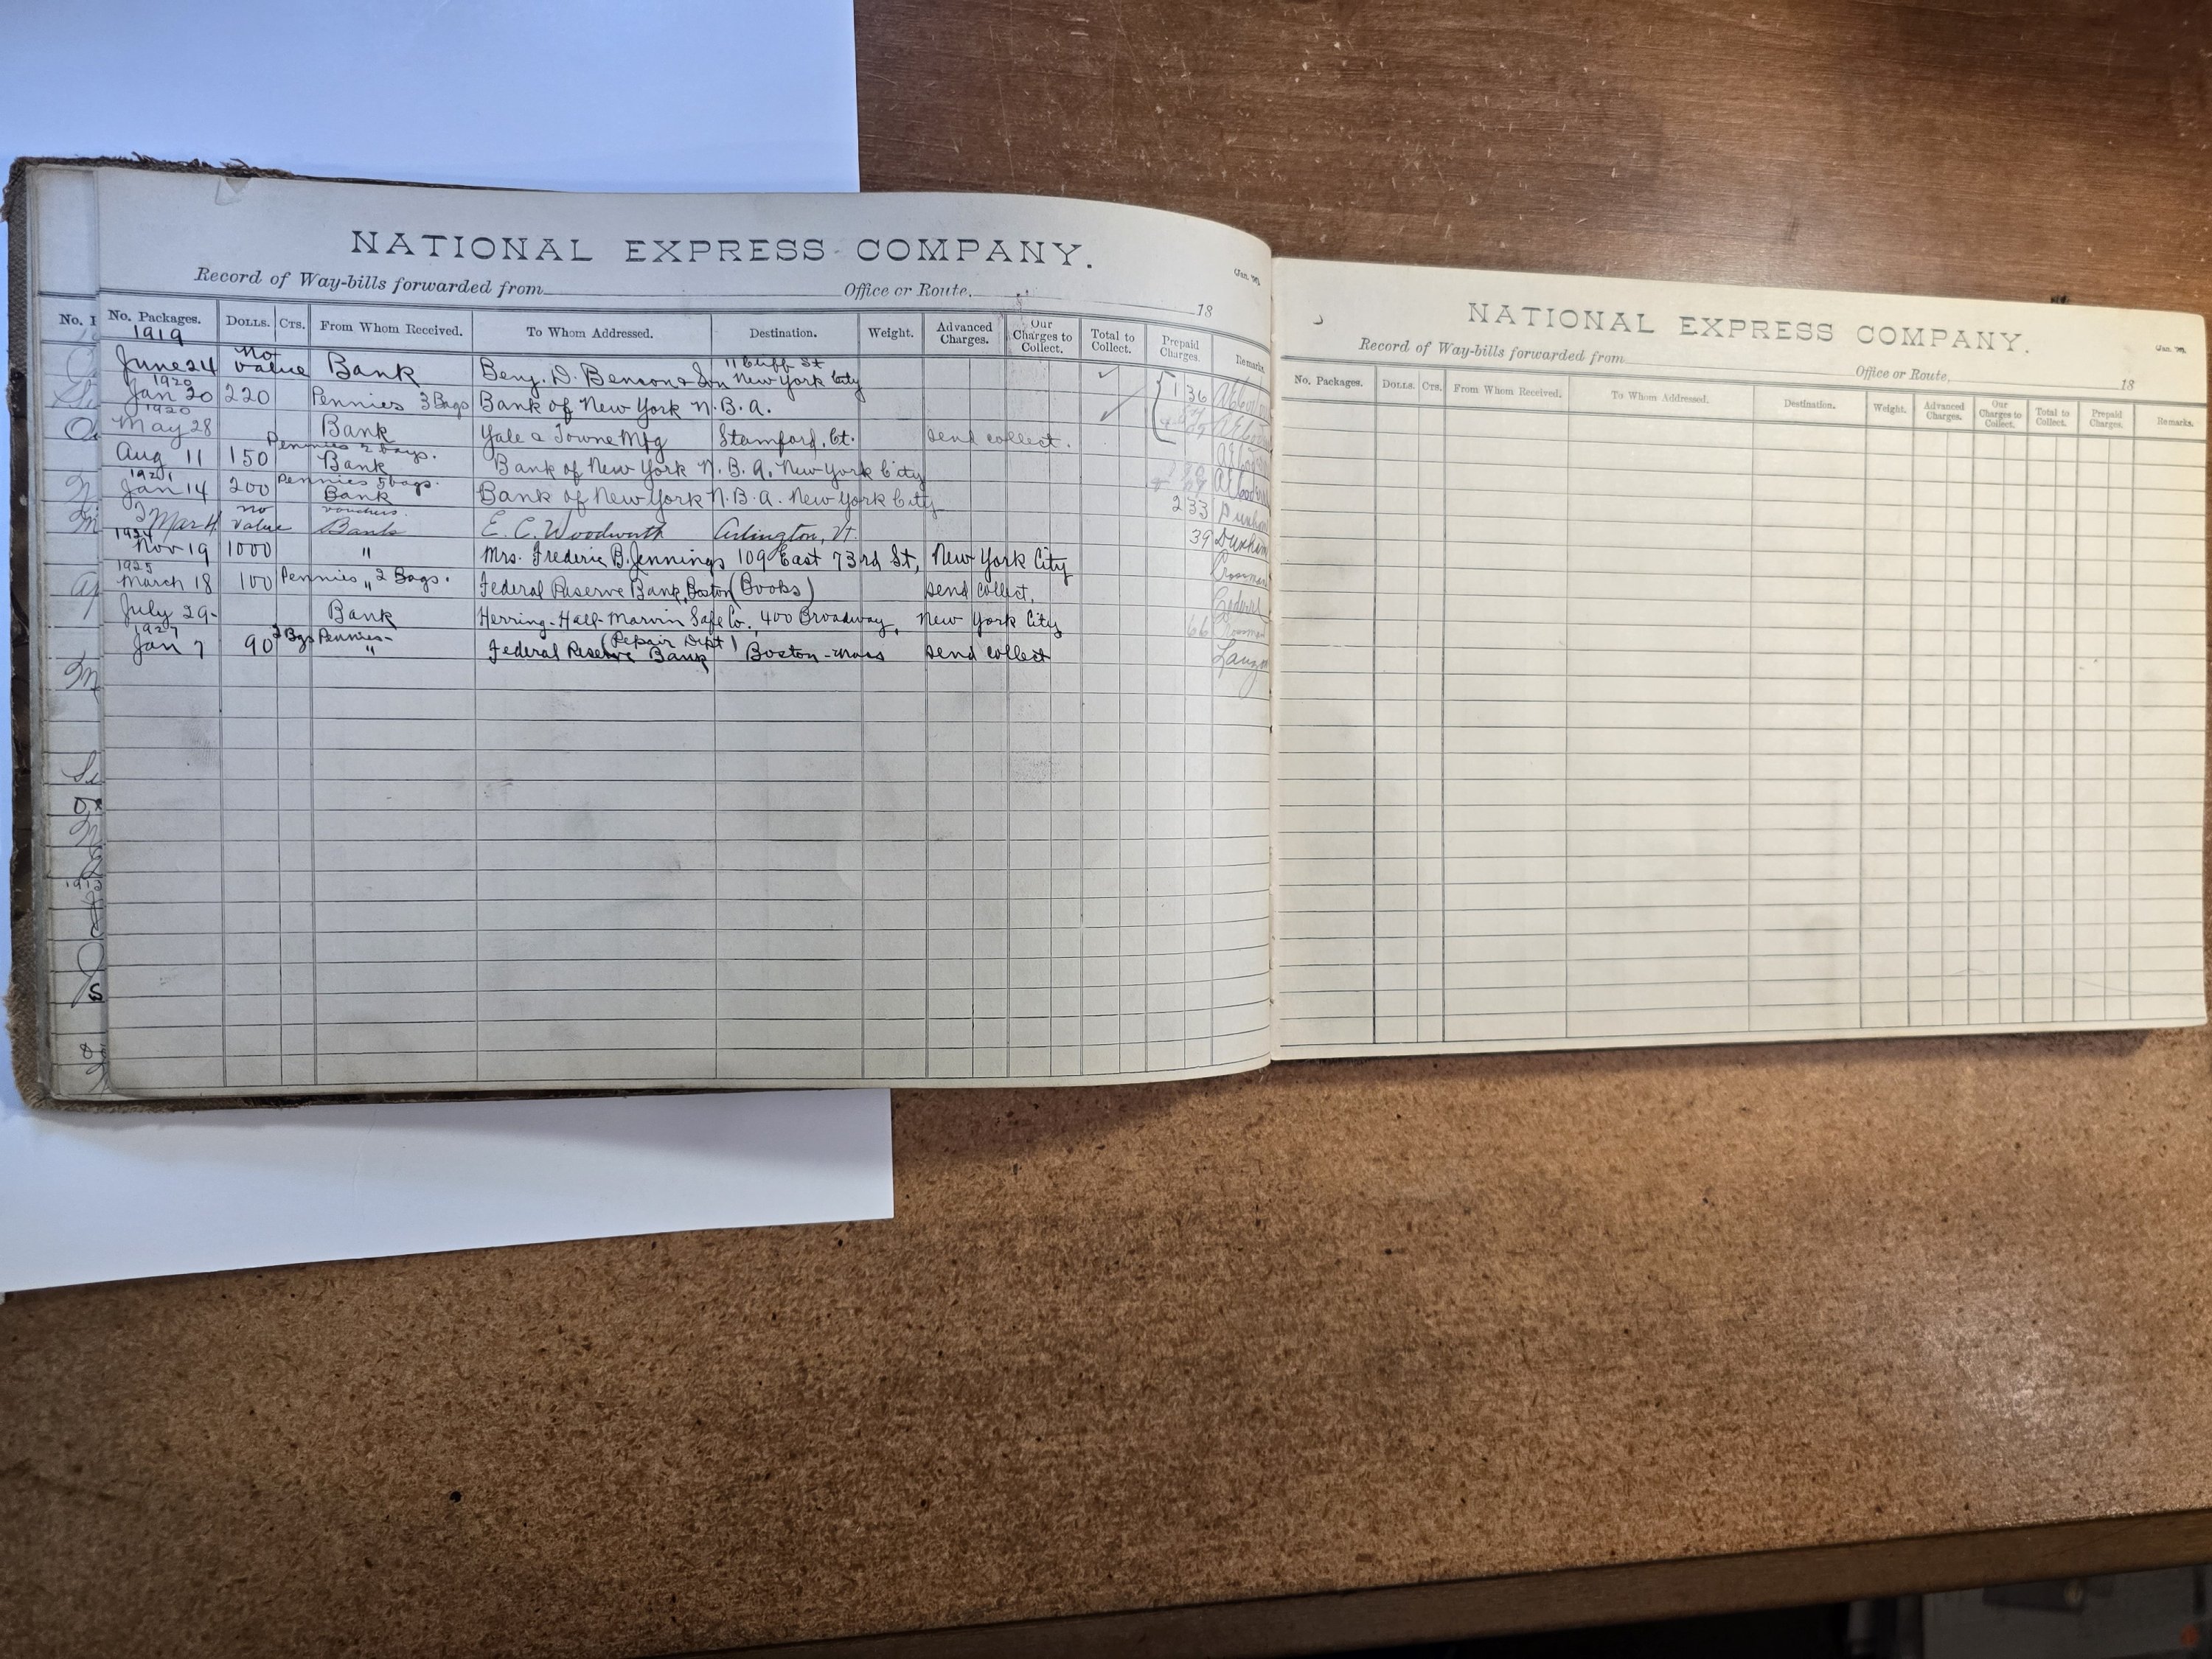 NATIONAL EXPRESS COMPANY.
Record of Way-bills forwarded from Office or Route, 18
No. Packages. Dolls. Cts. From Whom Received. To Whom Addressed. Destination. Weight. Advanced Charges. Our Charges to Collect. Total to Collect. Prepaid Charges. Remarks.
1919
June 24 not value Bank Benj. D. Benson & Son 11 Cliff St New York City
1920
Jan 20 220 Pennies 3 Bags Bank of New York N.B.A. 1 36
1920
May 28 Bank Yale & Towne Mfg Stamford, Ct. send collect.
Aug 11 150 Pennies 2 bags. Bank Bank of New York N.B.A. New York City
1921
Jan 14 200 Pennies 5 bags. Bank Bank of New York N.B.A. New York City 2 33
Mar 4 no value vouchers. Bank E. C. Woodworth Arlington, Vt. 39
1924
Nov 19 1000 " Mrs. Frederic B. Jennings 109 East 73rd St, New York City
1925
March 18 100 Pennies " 2 Bags. Federal Reserve Bank, Boston (Books) send collect. 
July 29- Bank Herring-Hall-Marvin Safe Co. 400 Broadway, New York City 66
(Repair Dept)
1927
Jan 7 90 2 Bgs Pennies- " Federal Reserve Bank Boston - Mass send collect
NATIONAL EXPRESS COMPANY.
Record of Way-bills forwarded from Office or Route, 18
No. Packages. Dolls. Cts. From Whom Received. To Whom Addressed. Destination. Weight. Advanced Charges. Our Charges to Collect. Total to Collect. Prepaid Charges. Remarks.